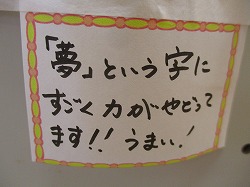 「夢」という字に
すごく力がやどって
ます!!うまい!